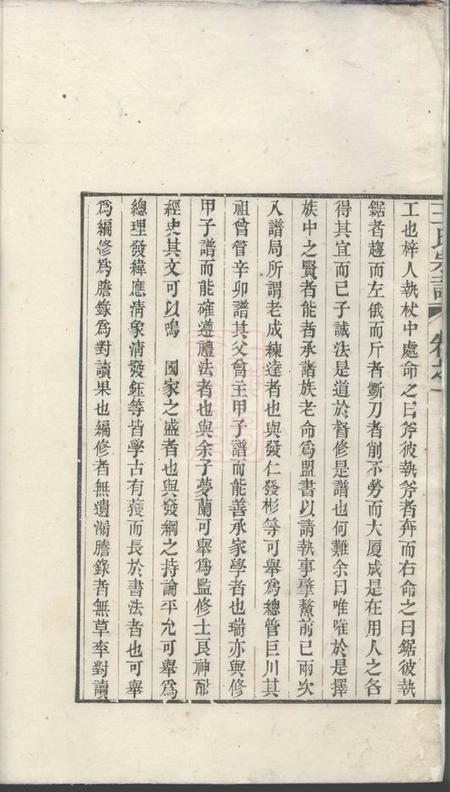 王氏宗譜 卷之一
工也梓人執杖中處命之曰斧彼執斧者奔而右命之曰鋸彼執
鋸者趨而左俄而斤者斷刀者削不勞而大厦成是在用人之各
得其宜而已子誠法是道於督修是譜也何難余曰唯唯於是擇
族中之賢者能者承諸族老命為盟書以請執事肇鰲前已兩次
入譜局所謂老成練達者也與發仁發彬等可舉為總管巨川其
祖曾管辛卯譜其父曾主甲子譜而能善承家學者也瑞亦與修
甲子譜而能確遵禮法者也與余子夢蘭可舉為監修士良神酣
經史其文可以鳴 國家之盛者也與發綱之持論平允可舉為
總理發緯應清象清發鈺等皆學古有獲而長於書法者也可舉
為編修為謄錄為對讀果也編修者無遺漏謄錄者無草率對讀